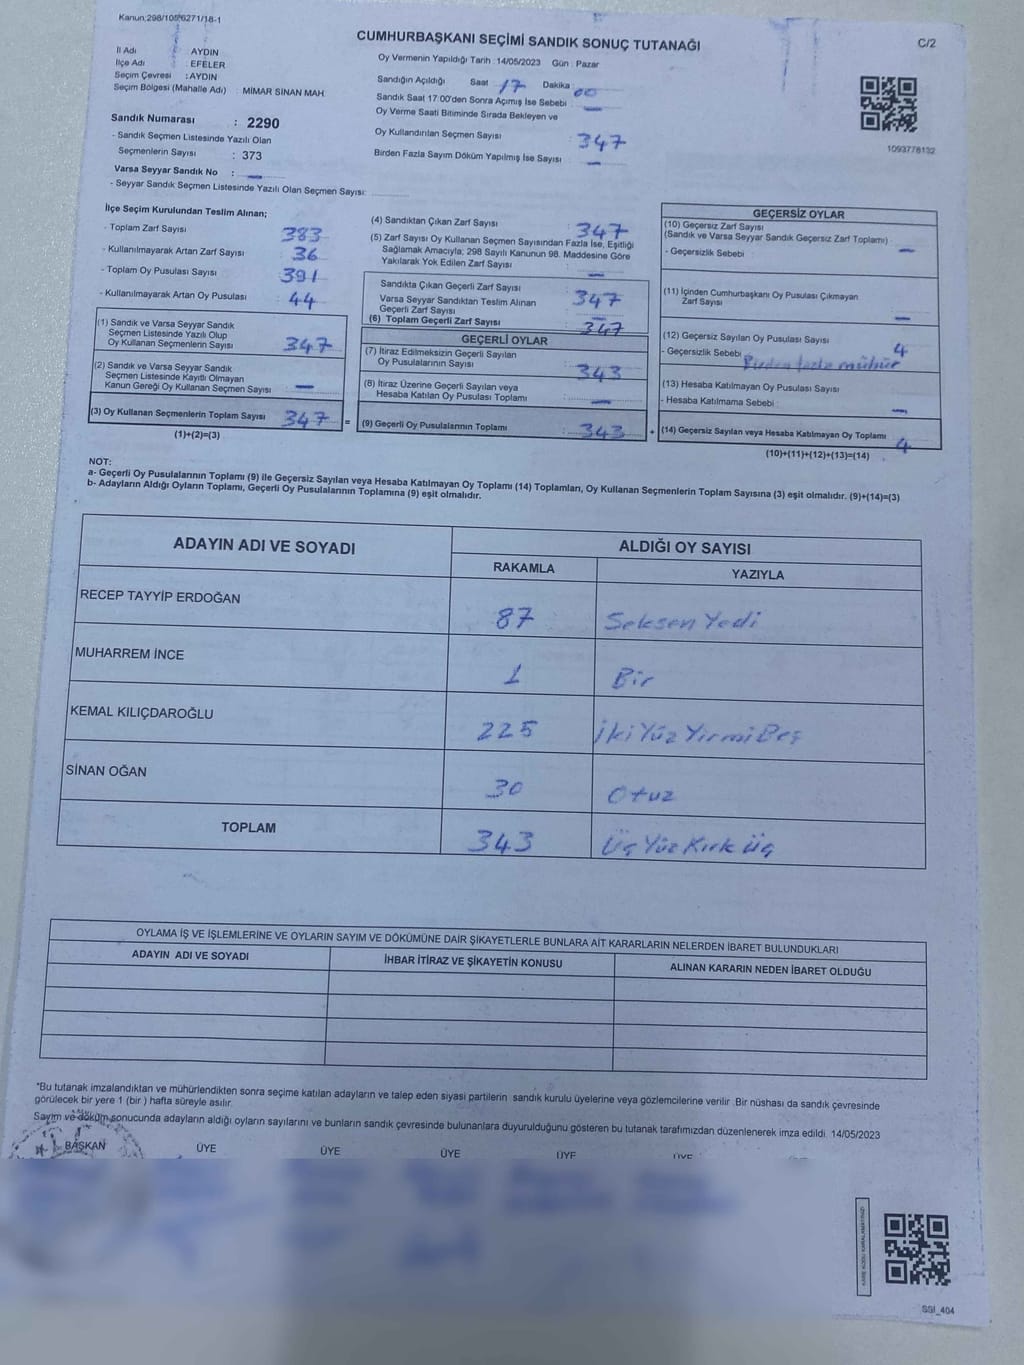 Kanun:298/105*6271/18-1
CUMHURBAŞKANI SEÇİMİ SANDIK SONUÇ TUTANAĞI
C/2
İl Adı : AYDIN
İlçe Adı : EFELER
Seçim Çevresi : AYDIN
Seçim Bölgesi (Mahalle Adı) : MİMAR SİNAN MAH
Oy Vermenin Yapıldığı Tarih : 14/05/2023 Gün : Pazar
Sandığın Açıldığı Saat 17 Dakika 00
Sandık Saat 17:00'den Sonra Açmış İse Sebebi : —
Oy Verme Saati Bitiminde Sırada Bekleyen ve
Oy Kullandırılan Seçmen Sayısı : 347
Birden Fazla Sayım Döküm Yapılmış İse Sayısı : —
1093778132
Sandık Numarası : 2290
- Sandık Seçmen Listesinde Yazılı Olan
Seçmenlerin Sayısı : 373
Varsa Seyyar Sandık No : —
- Seyyar Sandık Seçmen Listesinde Yazılı Olan Seçmen Sayısı:
İlçe Seçim Kurulundan Teslim Alınan;
- Toplam Zarf Sayısı 383
- Kullanılmayarak Artan Zarf Sayısı 36
- Toplam Oy Pusulası Sayısı 391
- Kullanılmayarak Artan Oy Pusulası 44
(1) Sandık ve Varsa Seyyar Sandık
Seçmen Listesinde Yazılı Olup
Oy Kullanan Seçmenlerin Sayısı : 347
(2) Sandık ve Varsa Seyyar Sandık
Seçmen Listesinde Kayıtlı Olmayan
Kanun Gereği Oy Kullanan Seçmen Sayısı : —
(3) Oy Kullanan Seçmenlerin Toplam Sayısı 347 =
(1)+(2)=(3)
(4) Sandıktan Çıkan Zarf Sayısı : 347
(5) Zarf Sayısı Oy Kullanan Seçmen Sayısından Fazla İse, Eşitliği
Sağlamak Amacıyla; 298 Sayılı Kanunun 98. Maddesine Göre
Yakılarak Yok Edilen Zarf Sayısı : —
Sandıkta Çıkan Geçerli Zarf Sayısı : 347
Varsa Seyyar Sandıktan Teslim Alınan
Geçerli Zarf Sayısı : —
(6) Toplam Geçerli Zarf Sayısı : 347
GEÇERLİ OYLAR
(7) İtiraz Edilmeksizin Geçerli Sayılan
Oy Pusulalarının Sayısı : 343
(8) İtiraz Üzerine Geçerli Sayılan veya
Hesaba Katılan Oy Pusulası Toplamı : —
(9) Geçerli Oy Pusulalarının Toplamı : 343 +
GEÇERSİZ OYLAR
(10) Geçersiz Zarf Sayısı
(Sandık ve Varsa Seyyar Sandık Geçersiz Zarf Toplamı) : —
- Geçersizlik Sebebi :
(11) İçinden Cumhurbaşkanı Oy Pusulası Çıkmayan
Zarf Sayısı : —
(12) Geçersiz Sayılan Oy Pusulası Sayısı : 4
- Geçersizlik Sebebi : Birden fazla mühür
(13) Hesaba Katılmayan Oy Pusulası Sayısı : —
- Hesaba Katılmama Sebebi :
(14) Geçersiz Sayılan veya Hesaba Katılmayan Oy Toplamı : 4
(10)+(11)+(12)+(13)=(14)
NOT:
a- Geçerli Oy Pusulalarının Toplamı (9) ile Geçersiz Sayılan veya Hesaba Katılmayan Oy Toplamı (14) Toplamları, Oy Kullanan Seçmenlerin Toplam Sayısına (3) eşit olmalıdır. (9)+(14)=(3)
b- Adayların Aldığı Oyların Toplamı, Geçerli Oy Pusulalarının Toplamına (9) eşit olmalıdır.
ADAYIN ADI VE SOYADI ALDIĞI OY SAYISI
RAKAMLA YAZIYLA
RECEP TAYYİP ERDOĞAN 87 Seksen Yedi
MUHARREM İNCE 1 Bir
KEMAL KILIÇDAROĞLU 225 İki Yüz Yirmi Beş
SİNAN OĞAN 30 Otuz
TOPLAM 343 Üç Yüz Kırk Üç
OYLAMA İŞ VE İŞLEMLERİNE VE OYLARIN SAYIM VE DÖKÜMÜNE DAİR ŞİKAYETLERLE BUNLARA AİT KARARLARIN NELERDEN İBARET BULUNDUKLARI
ADAYIN ADI VE SOYADI İHBAR İTİRAZ VE ŞİKAYETİN KONUSU ALINAN KARARIN NEDEN İBARET OLDUĞU
*Bu tutanak imzalandıktan ve mühürlendikten sonra seçime katılan adayların ve talep eden siyasi partilerin sandık kurulu üyelerine veya gözlemcilerine verilir. Bir nüshası da sandık çevresinde
görülecek bir yere 1 (bir ) hafta süreyle asılır.
Sayım ve döküm sonucunda adayların aldığı oyların sayılarını ve bunların sandık çevresinde bulunanlara duyurulduğunu gösteren bu tutanak tarafımızdan düzenlenerek imza edildi. 14/05/2023
BAŞKAN ÜYE ÜYE ÜYE ÜYE ÜYE
SSI_404